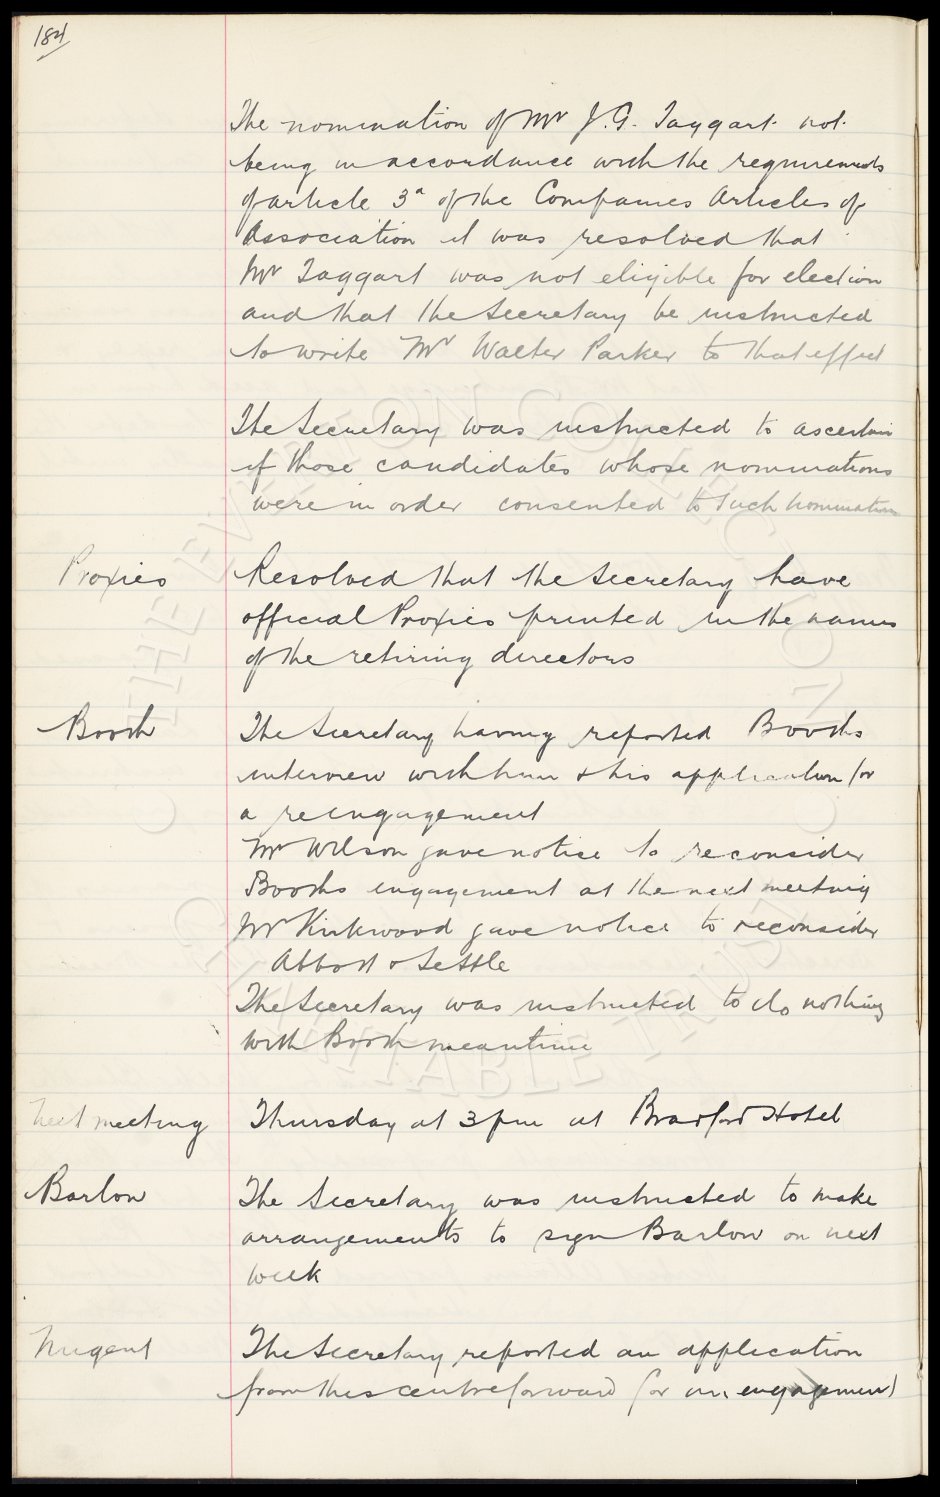 184
The nomination of Mr J. G. Taggart not
being in accordance with the requirements
of article 3a of the Companies Articles of
Association it was resolved that
Mr Taggart was not eligible for election
and that the Secretary be instructed
to write Mr Walter Parker to that effect
The Secretary was instructed to ascertain
if those candidates whose nominations
were in order consented to such nomination
Proxies
Resolved that the Secretary have
official Proxies printed in the names
of the retiring directors
Booth
The Secretary having reported Booths
interview with him & his application for
a reengagement
Mr Wilson gave notice to reconsider
Booths engagement at the next meeting
Mr Kirkwood gave notice to reconsider
Abbott & Settle
The Secretary was instructed to do nothing
with Booth meantime
Next meeting
Thursday at 3pm at Bradford Hotel
Barlow
The Secretary was instructed to make
arrangements to sign Barlow on next
week
Nugent
The Secretary reported an application
from this centreforward for an engagement
THE EVERTON COLLECTION
CHARITABLE TRUST